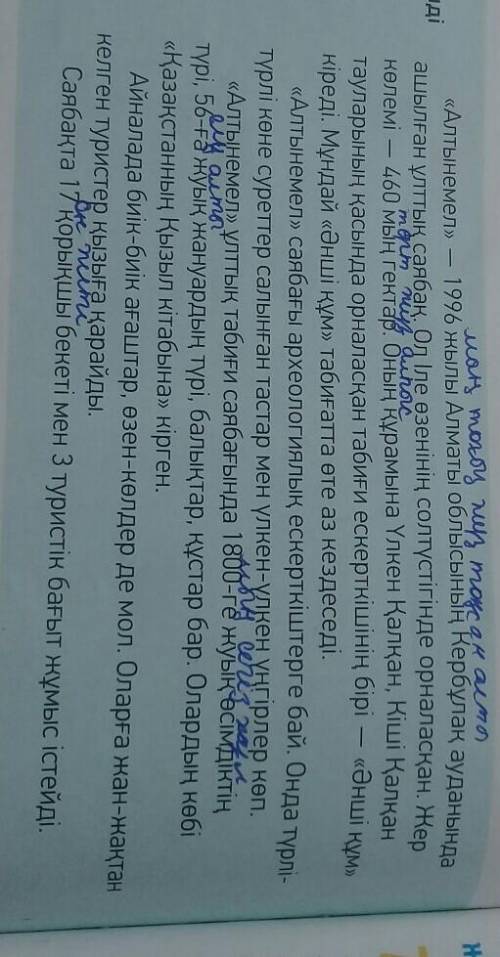 нді
мың тоғыз жүз тоқсан алты
«Алтынемел» — 1996 жылы Алматы облысының Кербұлақ ауданында
ашылған ұлттық саябақ. Ол Іле өзенінің солтүстігінде орналасқан. Жер
төрт жүз алпыс
көлемі — 460 мың гектар. Оның құрамына Үлкен Қалқан, Кіші Қалқан
тауларының қасында орналасқан табиғи ескерткішінің бірі — «Әнші құм»
кіреді. Мұндай «Әнші құм» табиғатта өте аз кездеседі.
«Алтынемел» саябағы археологиялық ескерткіштерге бай. Онда түрлі-
түрлі көне суреттер салынған тастар мен үлкен-үлкен үңгірлер көп.
«Алтынемел» ұлттық табиғи саябағында 1800-ге жуық өсімдіктің
елу алты мың сегіз
түрі, 56-ға жуық жануардың түрі, балықтар, құстар бар. Олардың көбі
«Қазақстанның Қызыл кітабына» кірген.
Айналада биік-биік ағаштар, өзен-көлдер де мол. Оларға жан-жақтан
келген туристер қызыға қарайды.
Саябақта 17 қорықшы бекеті мен 3 туристік бағыт жұмыс істейді.